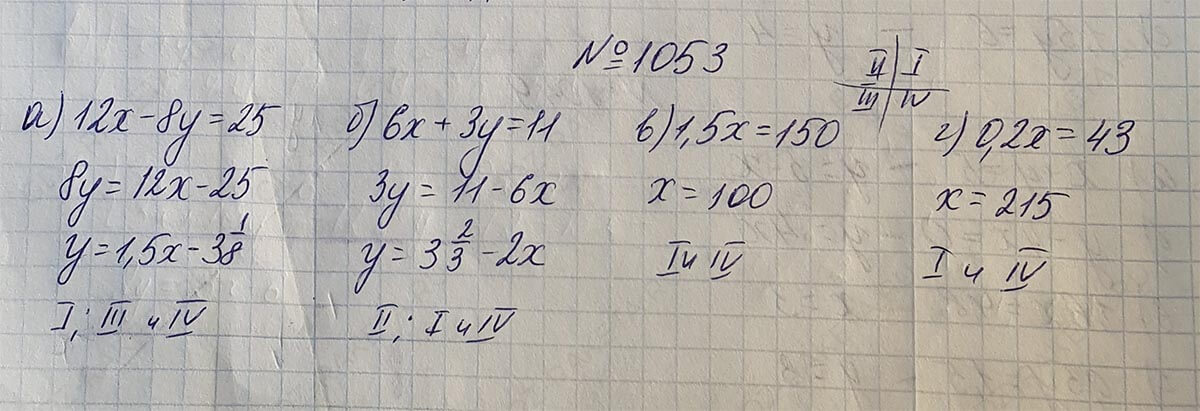 №1053
II I
III IV
а) 12x - 8y = 25
8y = 12x - 25
y = 1,5x - 3 1/8
I; III и IV
б) 6x + 3y = 11
3y = 11 - 6x
y = 3 2/3 - 2x
II; I и IV
в) 1,5x = 150
x = 100
I и IV
г) 0,2x = 43
x = 215
I и IV